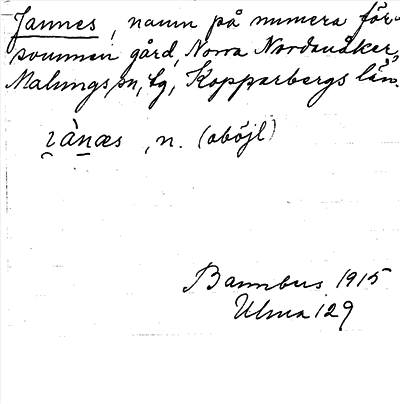 Jannes, namn på numera för-
svunnen gård, Norra Nordanåker,
Malungs sn, lg, Kopparbergs län.
ꞁànæs, n. (oböjl)
Bannbers 1915
Ulma 129